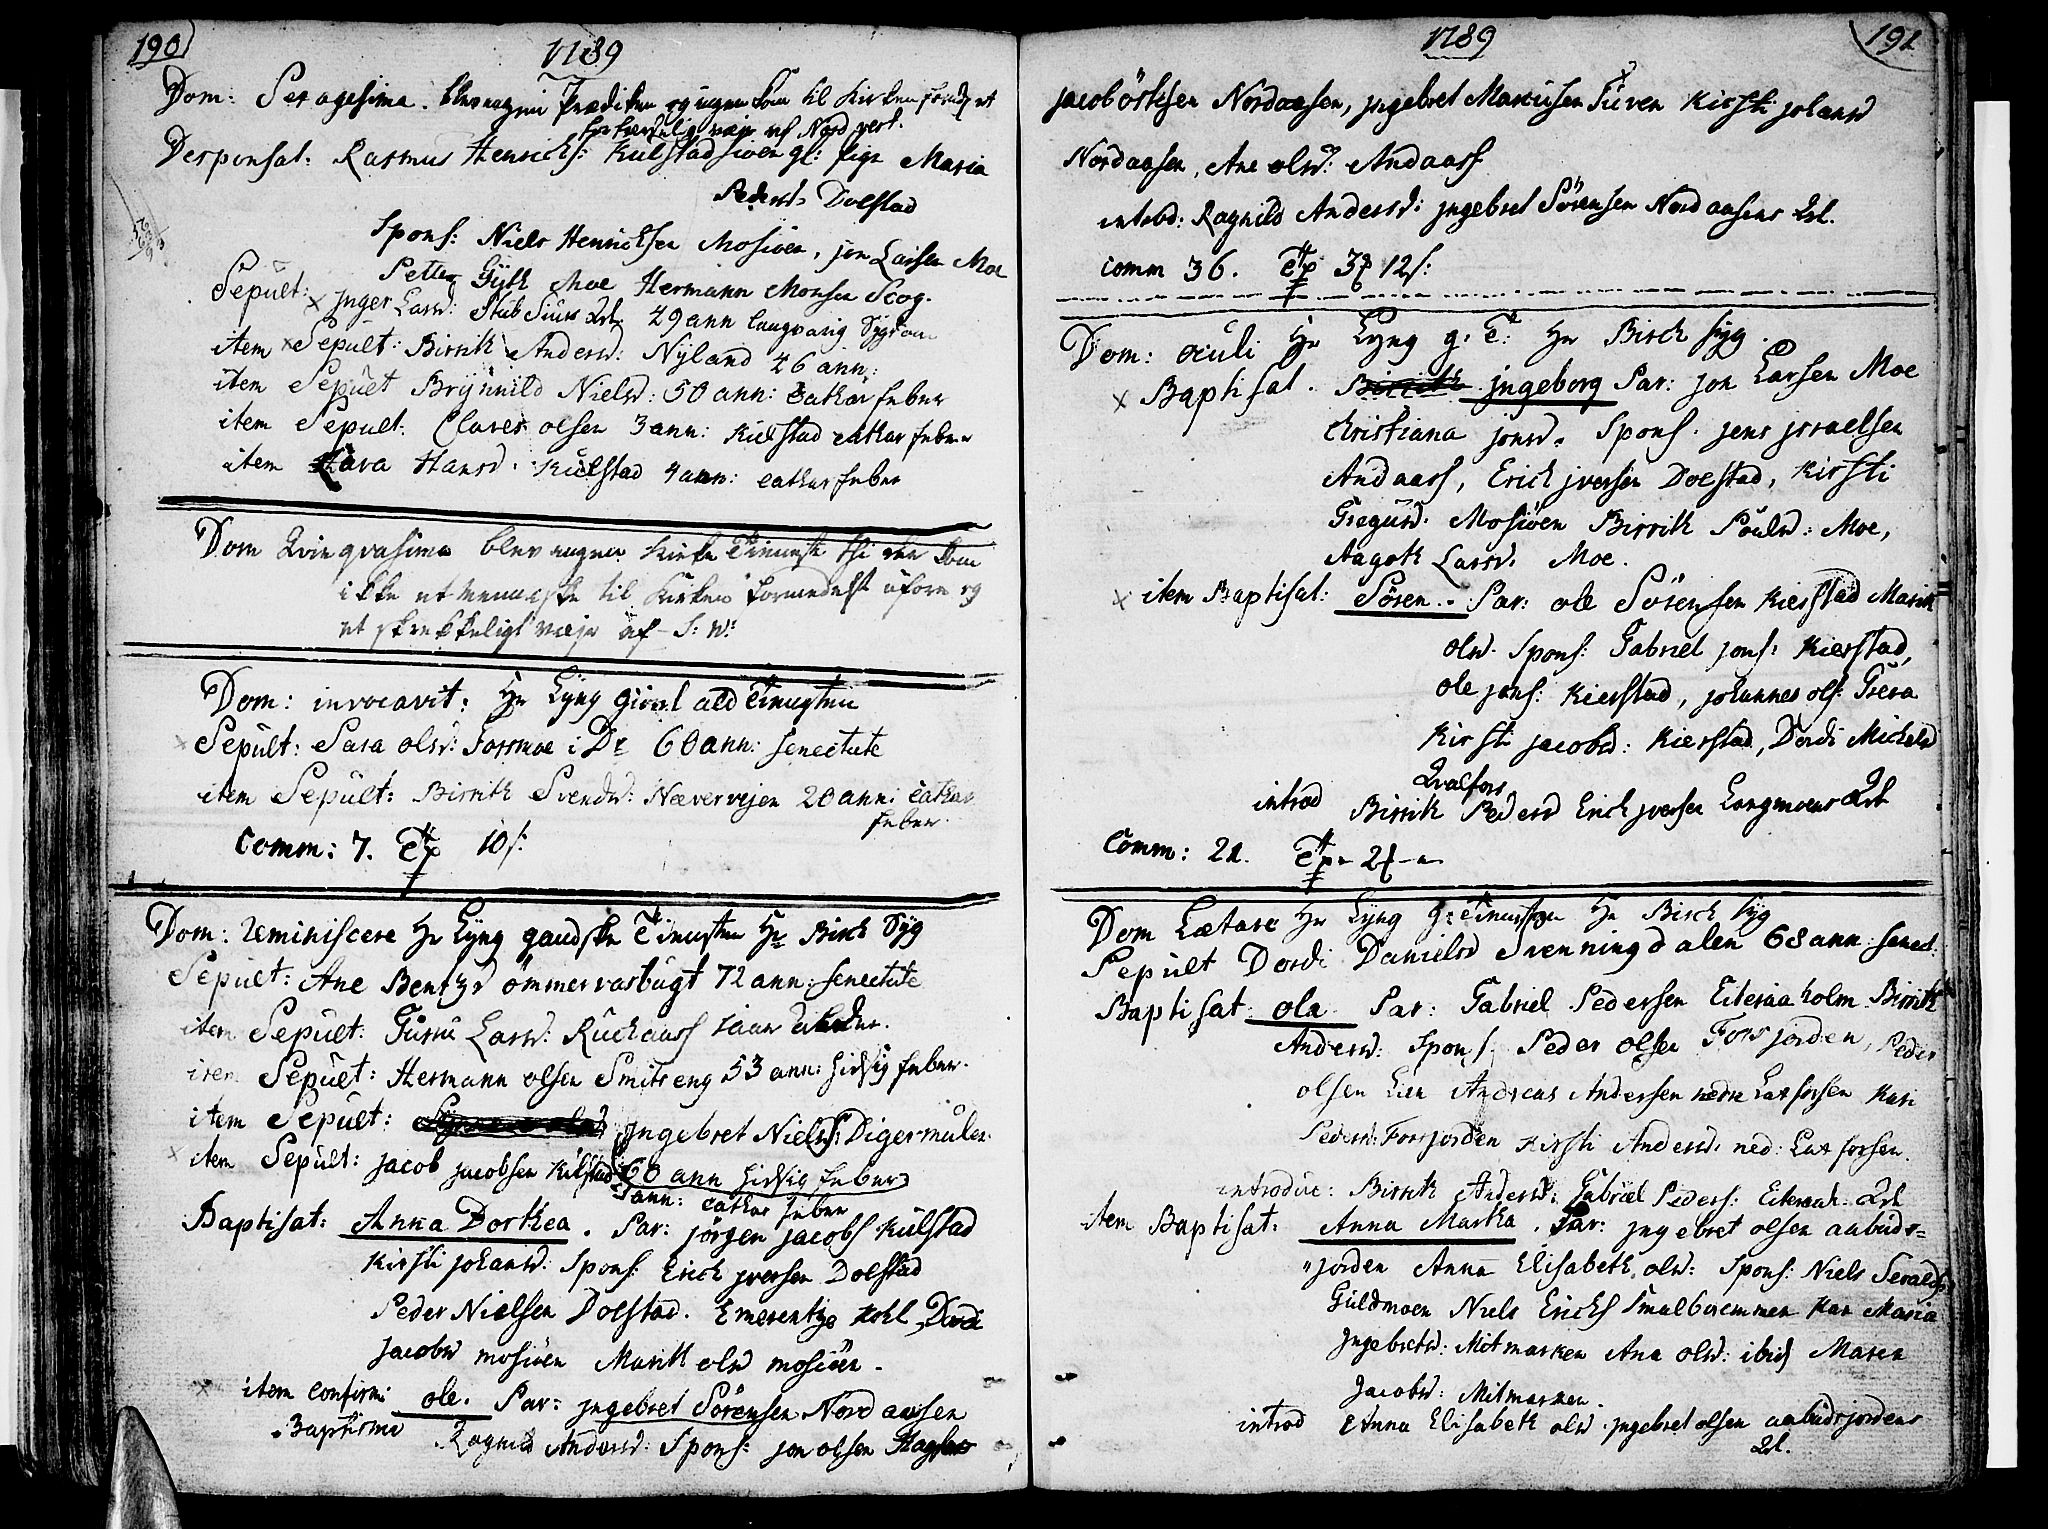 190
1789
Dom: Sexagesima. blev ingen Prædiken og ingen kom til Kirken formedelst
forskrækkelig vær af Nord vest.
Desponsat: Rasmus Henrichs: Kulstadsiøen gl: pige Maria
Pedersd. Dolstad
Spons: Niels Henrichsen Mosiøen, jon Larsen Moe
Petter Gÿth Moe Hermann Monsen Scog.
Sepult: x Jnger Larsd: Stub Siøens Qd. 29 ann langvarig Sygdom
item x Sepult: Birrith Andersd: Nÿland 26 ann:
item Sepult Brÿnnild Nielsd: 50 ann: cathar feber
item Sepult: Clares olsen 3 ann: Kulstad cathar feber
item Sara Hansd. Kulstad 4 ann: cathar feber
Dom Qvinqvasima blev ingen Kirke Tieneste thi der kom
ikke et Menneske til Kirken formedelst ufore og
et skrekkeligt vejr af S: W:
Dom: invocavit: Hr Lÿng giord ald Tienesten
x Sepult: Sara olsd: Forsmoe i Dr 60 ann: senectute
item Sepult: Birrith Svendsd: Nævervejen 20 ann: cathar
feber.
Comm: 7. 10 s:
Dom: Reminiscere Hr Lÿng gandske Tienesten Hr Birch Syg
Sepult: Ane Bentzd ömmervasbugt 72 ann: senectute
item Sepult: Guru Larsd: Ruchaass 1 aar
item Sepult: Hermann olsen Smitseng 53 ann: hidsig feber.
item Sepult: jngebret Niels: Digermulen.
x item Sepult: jacob jacobsen Kulstad 60 ann hidsig feber
ann: cathar feber
Baptisat: Anna Dorthea. Par: jörgen jacobs Kulstad
Kirsti johansd: Spons: Erich jversen Dolstad
Peder Nielsen Dolstad. Emerentze Kohl, Dordi
jacobsd mosiøen Marith olsd mosiøen.
x item confirm: ole. Par: jngebret Sörensen Nordaasen
Baptisme Ragnild Andersd: Spons: jon olsen
1789
191
jacob Nordaasen, jngebret Marcusen Tuven Kirsti johansd
Nordaasen, Ane olsd: Andaass
introd: Ragnild Andersd: jngebret Sörensen Nordaasens Qd.
comm 36. 12 s:
Dom: oculi Hr Lÿng g: T: Hr Birch syg.
x Baptisat. jngeborg Par: jon Larsen Moe
christiana jonsd. Spons. jens jsraelsen
Andaass, Erich jversen Dolstad, Kirsti
Gregusd. Mosiøen Birrith Poulsd: Moe,
Aagoth Larsd. Moe.
x item Baptisat: Sören. Par: ole Sörensen Kierstad Marith
olsd. Spons: Gabriel jons: Kierstad,
ole jons: Kierstad, johannes ols: Trera
Kirsti jacobsd: Kierstad, Dordi Michelsd
Qvalfors
introd Birrith Pedersd Erich jversen Langmoens Qd
Comm: 21.
Dom Lætare Hr Lÿng g: Tieneste Hr Birch syg
Sepult Dordi Danielsd Svenningdalen 68 ann: senect:
Baptisat: ola. Par: Gabriel Pedersen Eiteraaholm Birrith
Andersd: Spons: Peder olsen Forsjorden, Peder
olsen Lien Andreas Andersen nedre Laxforsen Kari
Pedersd: Forsjorden Kirsti Andersd: ned: Laxforsen.
introduc: Birrith Andersd: Gabriel Peders: Eiteraah. Qd
item Baptisat: Anna Martha. Par: jngebret olsen aabuds=
"jorden Anna Elisabeth olsd: Spons: Niels Serals:
Guldmoen Niels Erichs Smalbremmen Kar Maria
Jngebretsd: Mitmarken Ane olsd: ibid Maren
Jacobsd: Mitmarken.
introd Anna Elisabeth olsd. jngebret olsen aabudsjordens
Qd.